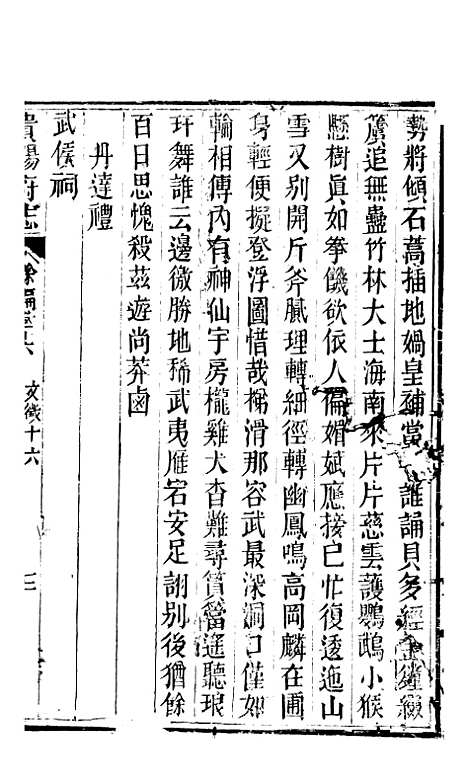 勢將傾石蒿插地媧皇補當 誰誦貝多經金鐘綴
簴追無蠡竹林大士海南來片片慈雲護鸚鵡小猴
懸樹真如拳饑欲依人偏媚嫵應接已忙復透迤山
雪又别開斤斧膩理轉細徑轉幽鳳鳴高岡麟在圃
身輕便擬登浮圖惜哉梯滑那容武最深洞口僅如
輪相傅内有神仙宇房櫳雞犬杳難尋篔簹遥聽琅
玕舞誰云邊徼勝地稀武夷雁宕安足詡别後猶餘
百日思愧殺兹遊尚莽鹵
丹達禮
武侯祠
貴陽府志 餘編卷六 文徵十六